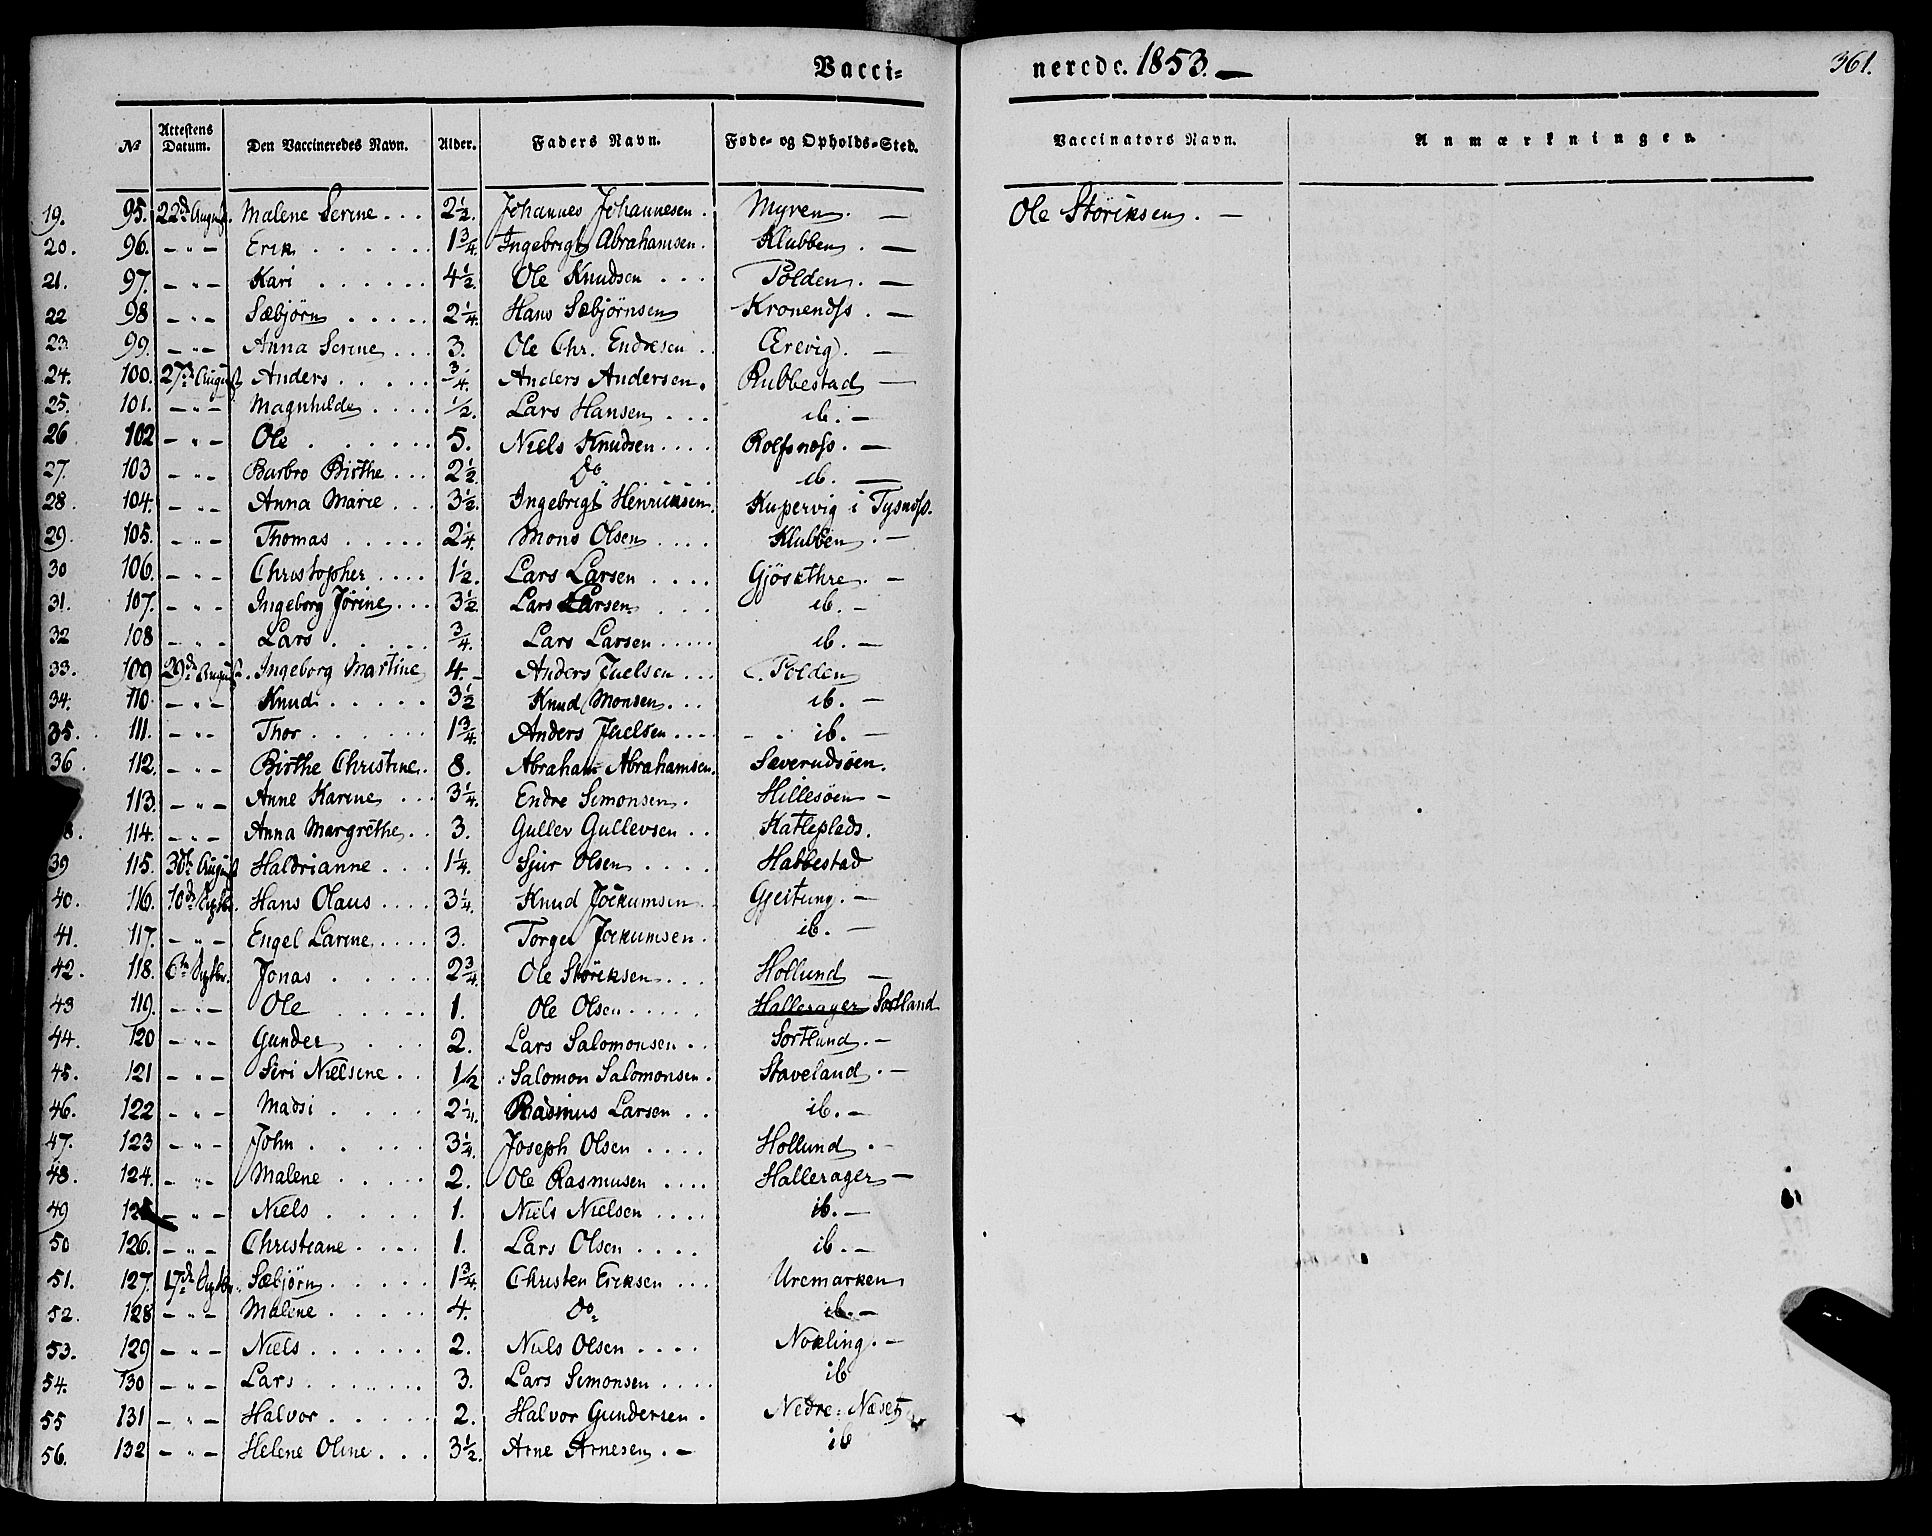 Vacci- nerede. 1853. —
361.
№ Attestens Datum. Den Vaccineredes Navn. Alder. Faders Navn. Føde- og Opholds-Sted. Vaccinators Navn. Anmærkningen
19. 95. 22d August. Malene Serine... 2½. Johannes Johannesen. Myren. — Ole Störksen. —
20. 96. — „ — Erik...... 1¾. Ingebrigt Abrahamsen. Klubben. —
21. 97. — „ — Kari...... 4½. Ole Knudsen... Polden. —
22 98 — „ — Sæbjørn..... 2¼. Hans Sæbjørnsen Kronenæss. —
23. 99. — „ — Anna Serine... 3. Ole Chr. Endresen.. Ærevig. —
24. 100. 27de August Anders..... ¾. Anders Andersen. Rubbestad —
25. 101. — „ — Magnhilde.... ½. Lars Hansen... ib. —
26 102 — „ — Ole...... 5. Niels Knudsen.... Rolfsnæss. —
27. 103 — „ — Barbro Birthe... 2½. Do.... ib. —
28. 104. — „ — Anna Marie... 3½. Ingebrigt Henriksen. Kupervig i Tysnæss.
29. 105. — „ — Thomas..... 2¼. Mons Olsen.... Klubben. —
30 106. — „ — Christopher.... 1½. Lars Larsen.... Gjöskthre. —
31. 107. — „ — Ingeborg Jørine... 3½ Lars Larsen.... ib. —
32 108 — „ — Lars..... ¾. Lars Larsen..... ib. —
33. 109 29de August. Ingeborg Martine 4. — Anders Juelsen... Polden
34. 110. — „ — Knud..... 3½ Knud Monsen... ib. —
35. 111. — „ — Thor...... 1¾. Anders Juelsen.... ib. —
36. 112. — „ — Birthe Christine. 8. Abraham Abrahamsen. Sæverudsöen.
113. — „ — Anne Karine... 3¼. Endre Simonsen. Hillesöen —
8. 114. — „ — Anna Margrethe.. 3. Guller Gullevsen.. Katleplads.
39 115. 30te August Haldrianne... 1¼. Sjur Olsen.... Habbestad
40. 116. 10de Septbr. Hans Olaus.... 3¼. Knud Jöckumsen.. Gjeitung. —
41. 117. — „ — Engel Larine.... 3. Torger Jockumsen. ib. —
42. 118. 6te Septbr. Jonas..... 2¾. Ole Störksen... Hollund —
43 119. — „ — Ole..... 1. Ole Olsen..... Hallerager Sortland
44. 120 — „ — Gunder.... 2. Lars Salomonsen.. Sortlund. —
45. 121 — „ — Siri Nielsene.. 1/2 Salomon Salomonsen. Staveland. —
46. 122 — „ — Madsi.... 2¼. Rasmus Larsen.. ib. —
47. 123 — „ — John..... 3¼. Joseph Olsen.... Hollund. —
48. 124. — „ — Malene..... 2. Ole Rasmusen.... Hallerager —
49 125 — „ — Niels..... 1. Niels Nielsen.... ib. —
50 126. — „ — Christiane.... 1. Lars Olsen.... ib. —
51. 127. 17de Septbr. Sæbjörn..... 1¾. Christen Eriksen... Uremarken
52. 128 — „ — Malene..... 4. Do. ib. —
53. 129 — „ — Niels...... 2. Niels Olsen.... Nokling. —
54. 130 — „ — Lars....... 3. Lars Simonsen.... ib
55 131 — „ — Halvor..... 2. Halvor Gundersen. Nedre Næset
56. 132 — „ — Helene Oline... 3½. Arne Arnesen. — ib